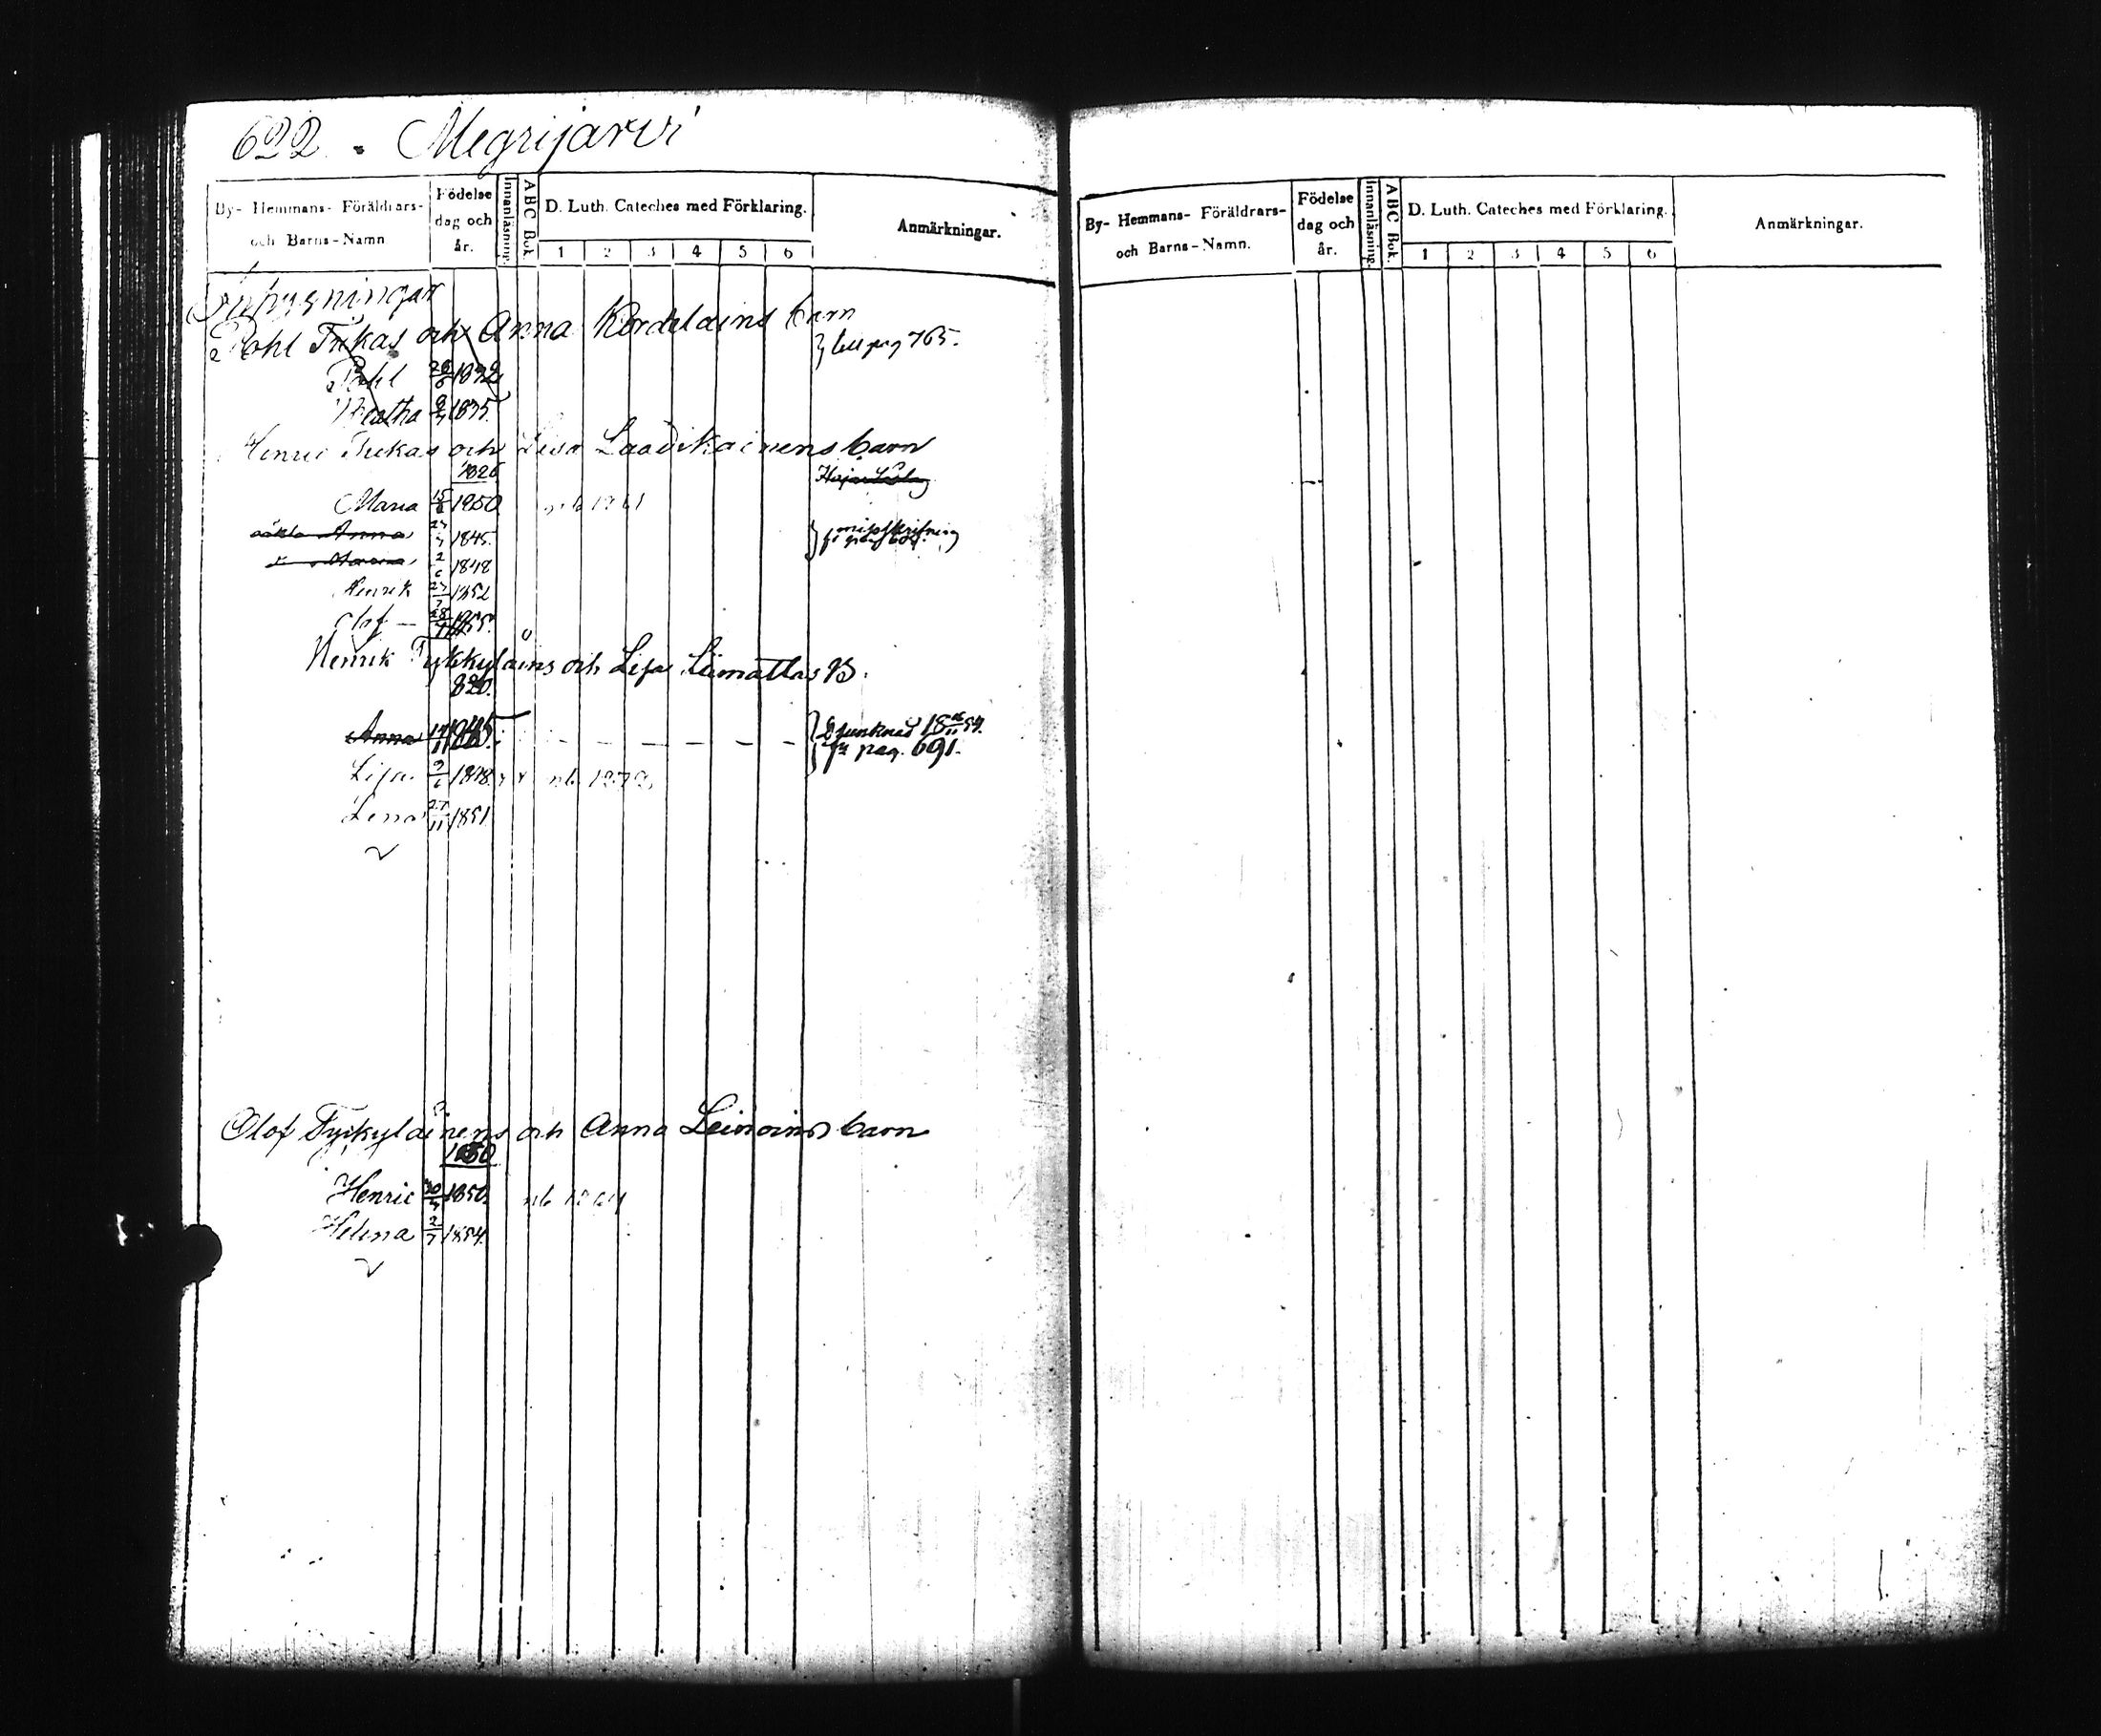 622. Megrijarvi
By- Hemmans- Föräldrars- och Barns-Namn
Födelse dag och år.
Innanläsning.
ABC Bok.
D. Luth. Cateches med Förklaring.
1 2 3 4 5 6
Anmärkningar.
Pohl Tukas och Anna Kordelains barn
} till pag 765.
Pohl 1832
1835.
Henric Tukas och Lisa Laadikainens barn
1826
Maria 15/8 1850
Anna 1845.
} misskrifning
2/6 1848
Henrik 27/7 1852
Olof 1855.
Henrik Tykkyläins och Lisa Liimattas B.
820.
Anna 1845 } Drunknad 18 16/11 54.
fr pag. 691.
Lisa 9/6 1848
Lena 27/11 1851
Olof Tyckyläinens och Anna Leinoins barn
1850
Henric 30/4 1850.
Helena 2/7 1854.
By- Hemmans- Föräldrars- och Barns-Namn.
Födelse dag och år.
Innanläsning.
ABC Bok.
D. Luth. Cateches med Förklaring.
1 2 3 4 5 6
Anmärkningar.